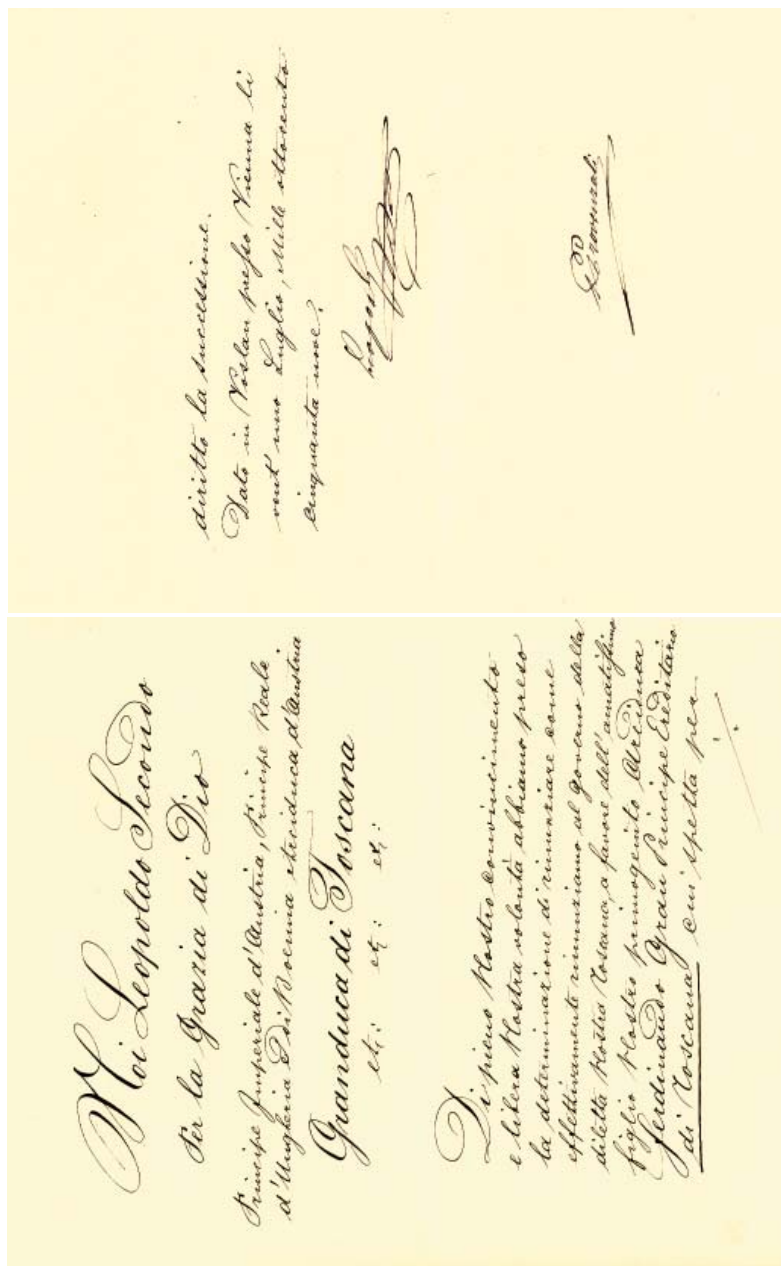 Noi Leopoldo Secondo
Per la Grazia di Dio
Principe Imperiale d'Austria, Principe Reale
d'Ungheria e di Boemia Arciduca d'Austria
Granduca di Toscana
etc: etc: etc:
Di pieno Nostro convincimento
e libera Nostra volontà abbiamo preso
la determinazione di rinunziare come
effettivamente rinunziamo al governo della
diletta Nostra Toscana, a favore dell'amatissimo
figlio Nostro primogenito Arciduca
Ferdinando Gran Principe Ereditario
di Toscana cui spetta per
diritto la successione.
Dato in Vöslau presso Vienna li
vent'uno Luglio, Mille ottocento
cinquanta nove.
Leopoldo